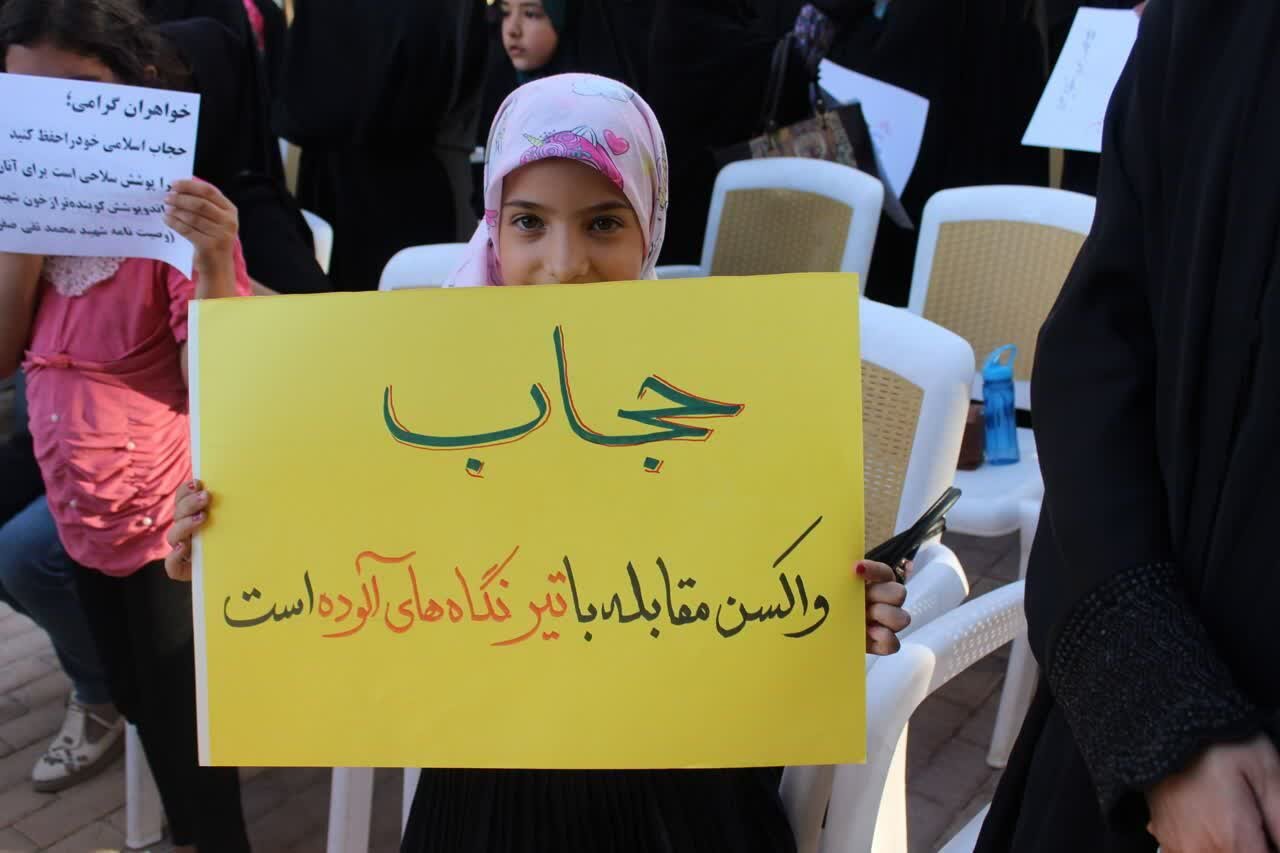 خواهران گرامی؛
حجاب اسلامی خود را حفظ کنید
را پوشش سلاحی است برای آنان
اند و پوشش کوبنده تر از خون شهید
(وصیت نامه شهید محمد تقی صفر
حجاب
واکسن مقابله با تیر نگاه های آلوده است